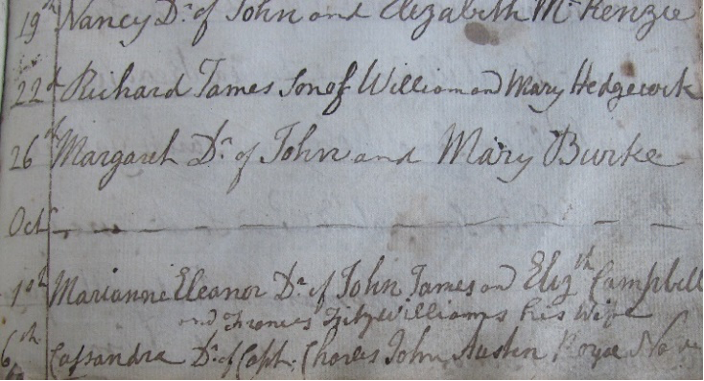 19th Nancy Dr. of John and Elizabeth McKenzie
22d Richard James Son of William and Mary Hedgecock
26th Margaret Dr. of John and Mary Burke
Octr
1st Marianne Eleanor Dr. of John James and Elizth Campbell
and Frances Fitzwilliams his Wife
6th Cassandra Dr. of Capt. Charles John Austen Royal